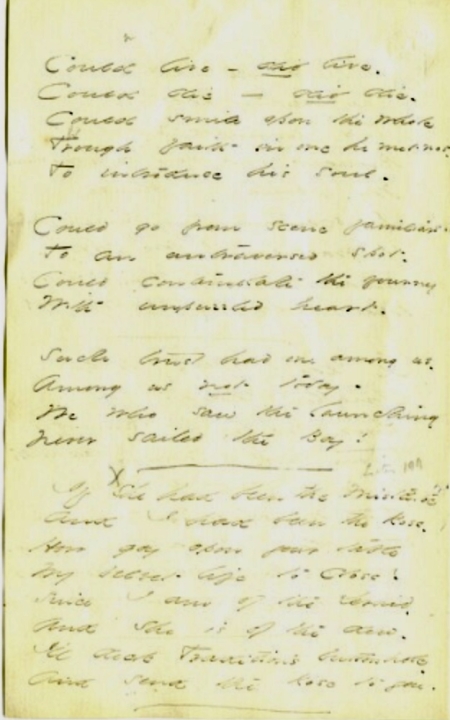 Could live – did live.
Could die – did die.
Could smile upon the whole
Through faith in one he met not
To introduce his soul.
Could go from scene familiar
To an untraversed spot.
Could contemplate the journey
With unpuzzled heart.
Such trust had one among us.
Among us not today.
We who saw the launching
Never sailed the Bay!
If She had been the Mistletoe
And I had been the Rose.
How gay upon your table
My velvet life to Close!
Since I am of the Druid
And she is of the dew.
I'll deck Tradition's buttonhole
And send the Rose to you.